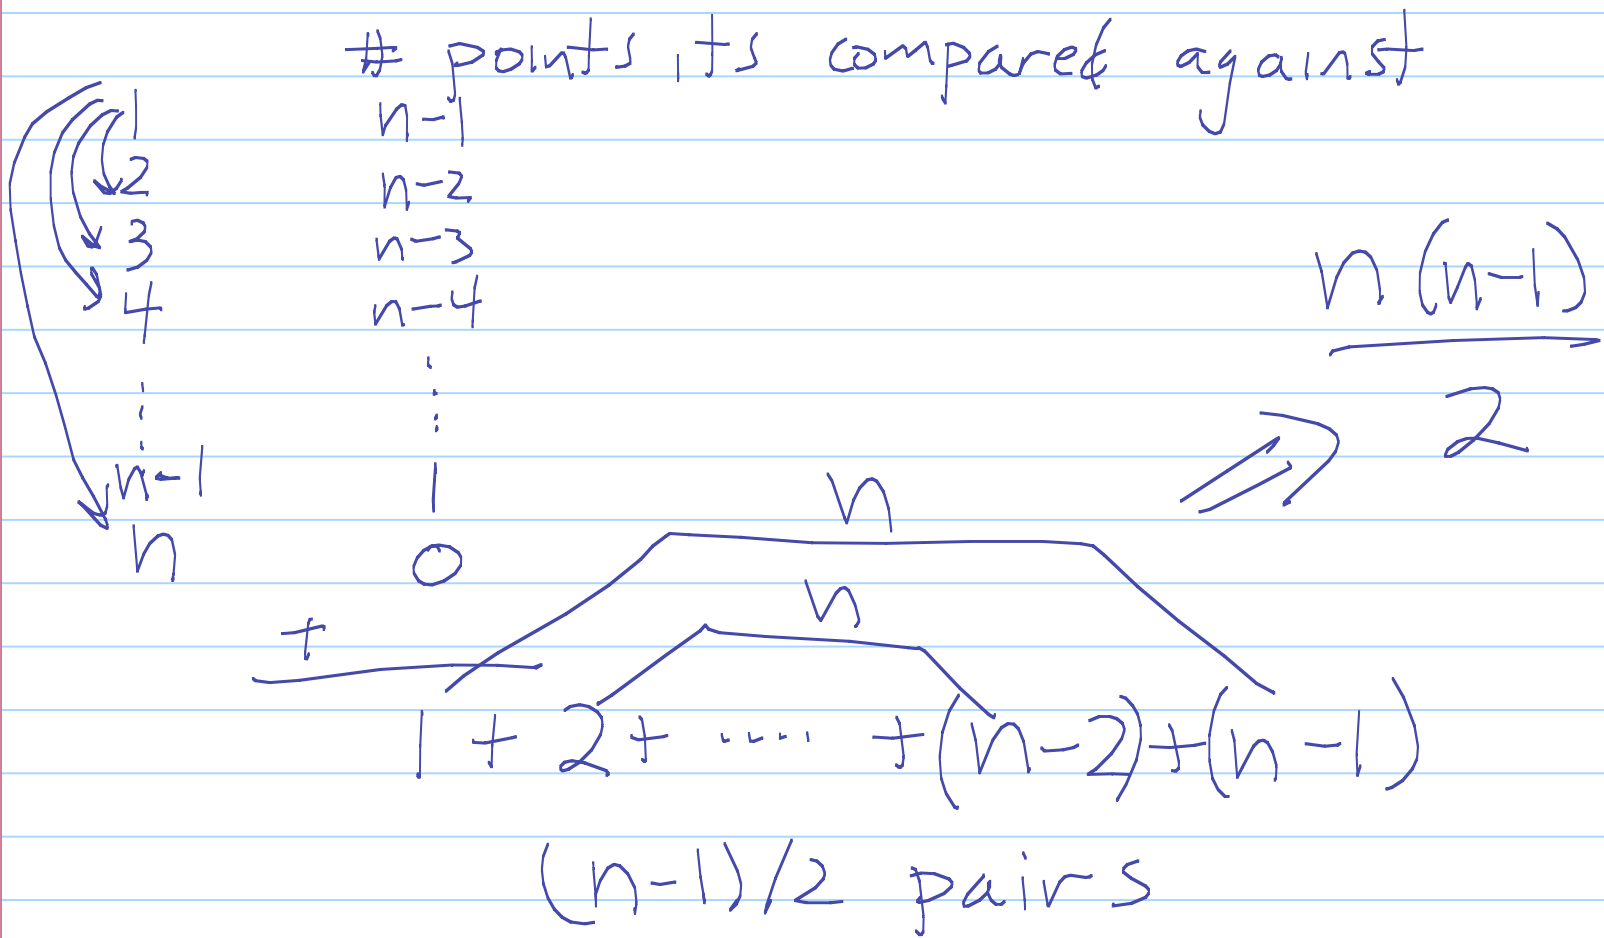 # points its compared against
1 n-1
2 n-2
3 n-3
4 n-4
n(n-1)
2
n-1 1
n
n 0
n
+
1 + 2 + .... + (n-2) + (n-1)
(n-1)/2 pairs